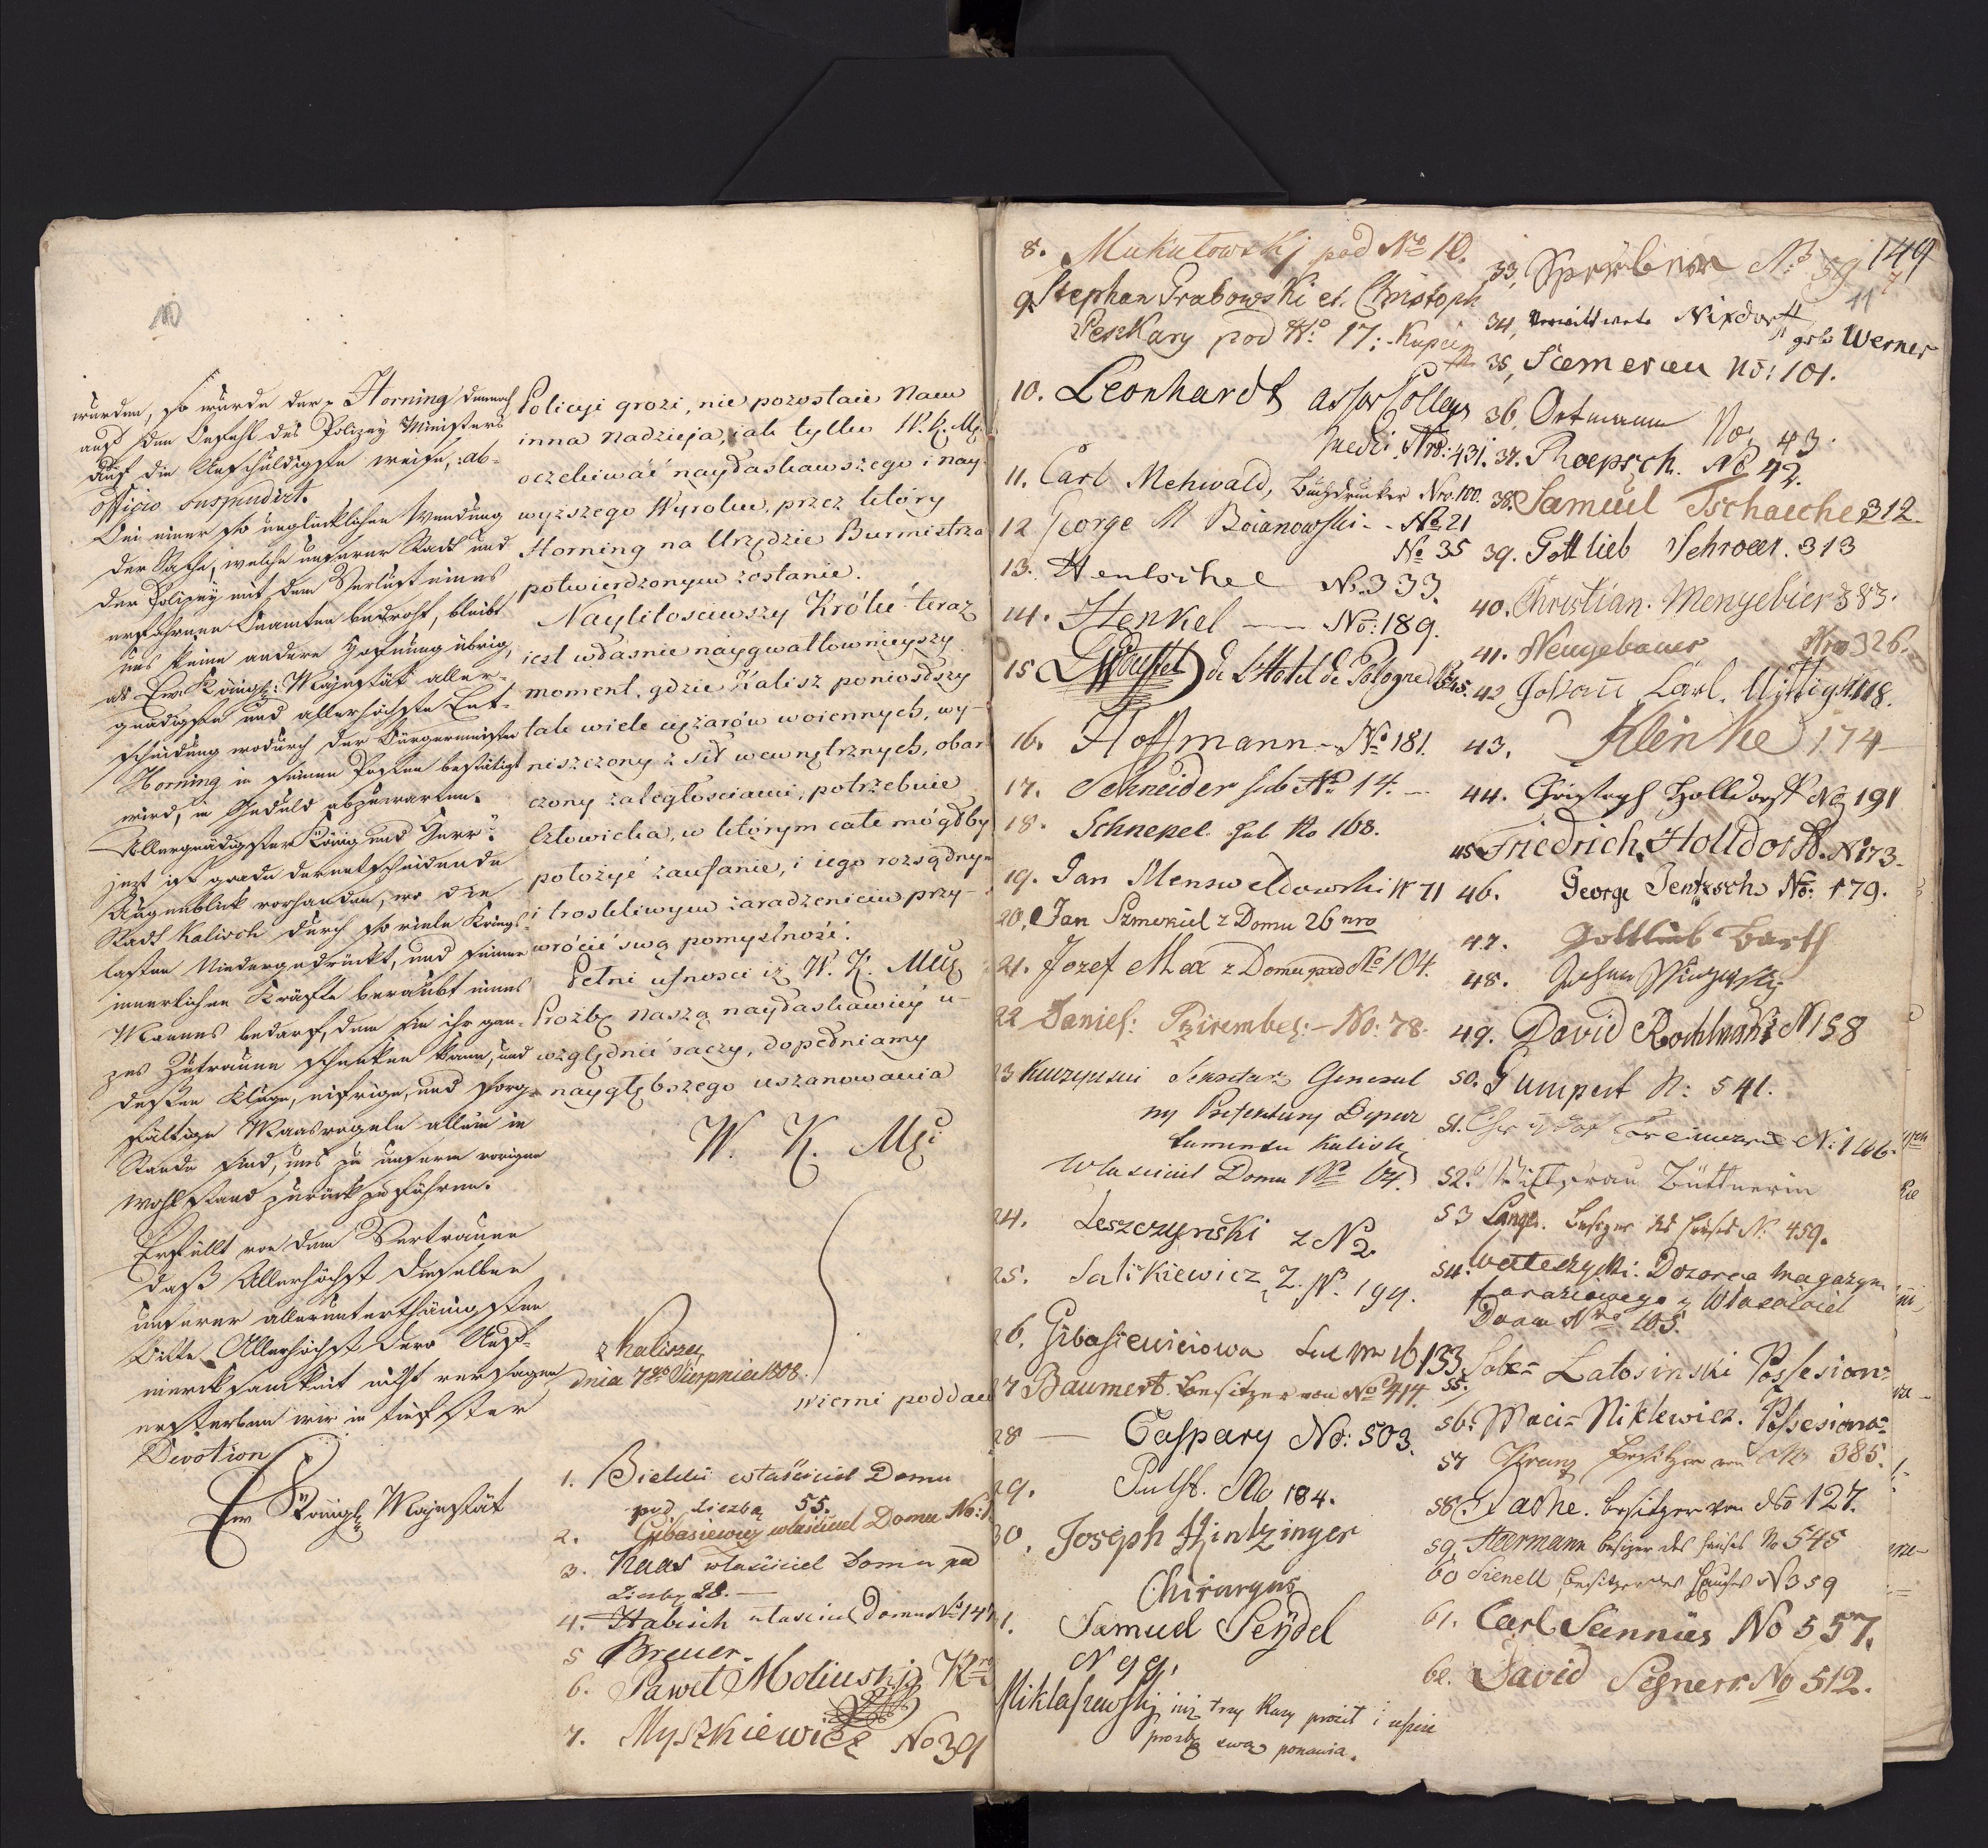 10
wurden, so wurde der p Horning dennoch
auf den Befehl des Polizey Ministers
auf die Unschuldigste weise, ab
officio suspendirt.
Bei einer so unglücklichen Wendung
der Sache, welche unserer Stadt und
der Polizey mit dem Verlust eines
erfahrnen Beamten bedroht, bleibt
uns keine andere Hofnung übrig,
als Ew. Königl: Majestät aller-
gnädigste und allerhöchste Ent-
scheidung wodurch der Bürgermeister
Horning in seinen Posten bestätigt
wird, in Geduld abzuwarten.
Allergnädigster König und Herr!
jezt ist grade der entscheidende
Augenblick vorhanden, wo die
Stadt Kalisch durch so viele Kriegs-
lasten Niedergedrückt, und seiner
innerlichen Kräfte beraubt eines
Mannes bedarf, dem sie ihr gan-
zes Zutrauen schenken kann, und
dessen Kluge, eifrige, und sorg-
fältige Maasregeln allein im
Stande sind, uns zu unserm vorigen
Wohlstand zurück zu führen.
Erfüllt von dem Vertrauen
daß Allerhöchst dieselben
unserer allerunterthänigsten
Bitte Allerhöchst dero Auf-
merksamkeit nicht versagen
ersterben wir in tiefster
Devotion
Ew Königl Majestät
Policyi grozi, nie pozostaie Nam
inna nadzieja, iak tylko W. K. Mci
oczekiwać naydaskawszego i nay-
wyższego Wyroku, przez który
Horning na Urzędzie Burmistrza
potwierdzonym zostanie.
Naylitosciwszy Królu! teraz
iest wdasnie naygwałtownieyszy
moment, gdzie Kalisz poniosdszy
tak wiele ciężarów woiennych, wy-
niszczony z sił wewnętrznych, obar-
czony zaległosciami, potrzebuie
Człowieka, w którym cale mógdby
położyć zaufanie, i iego rozsądnym
i troskliwym zaradzeniem przy-
wrócić swą pomyslność.
Pełni ufnosci iż W. K. Mość
Prożbę naszą naydaskawiey u-
względnić raczy, dopedniamy
naygłębszego uszanowania
W. K. Mci
z Kalisza
dnia 7go Sierpnia 1808.
wierni poddani
1. Bielski właściciel Domu
pod liczbą 55.
2. Gibasiewicz właściciel Domu No: 1
3. Haas właściciel Domu pod
Liczbą 28.
4. Habisch właściciel Domu No 147
5 Breuer.
6. Paweł Moliuski
7. Myszkiewicz No 39
8. Mukułowskj pod No 10.
9. Stephan Grabowski et. Christoph
Peskary pod No. 17: Kupcy
10. Leonhardt Assor Colleg
medic. Nro: 431.
11. Carl Mehwald, Buchdrucker Nro. 100.
12 George M Boianowski - - No 21
No 35
13. Hentschel No. 333.
14. Henkel No: 189.
15 de L'Hotel de Pologne
16. Hoffmann No 181.
17. Schneider sub No 14.
18. Schnepel. sub No 168.
19. Jan Mensweldowski N 71
20. Jan Szmekiel z Domu 26 nro
21. Jozef Max z Domu pod No 104.
22 Daniel: Pzirembel: - No: 78.
23 Kuczynski Sekretarz General
ny Prefektury Depar
tamentu Kalisk
Wlasciciel Domu No 64.
24. Leszczyński z No 2.
25. Salikiewicz Z. No. 199.
26. Gibasiewiciowa
27 Baumert. Besitzer von No 414.
28 Caspary No: 503.
29. Pulst. No 184.
30. Joseph Hintzinger
Chirurgus
31. Samuel Seydel
N 99,
Miklaszewskj iuż trzy Razy prosił i ieszcze
prosbę swą ponawia.
149
11
33, Sperber No 59
34, Verwittwete Nixdorff geb Werner
35, Samerau No: 101.
36, Ortmann No: 43.
37. Phoepsch. No 42.
38. Samuel Tschatche 312
39. Gottlieb Schroeer. 313
40. Christian. Mengebier 383.
41. Neugebauer Nro 326.
42 Johann Carl. Uttig N 118.
43. Klinke 174
44. Christoph Holldorff No 191
45 Friedrich Holldorff. N 173
46. George Jentzsch No: 179.
47. Gottlieb Barth
48. Johan
49. David Rochlinski N 158
50. Gumpert N: 541.
51. N: 166.
52. Wittfrau Büttnerin
53 Lange. Besizer des Hauses N: 459.
54. Dozorca Magazyn
Furażowego y Własciciel
Domu Nro 105.
55. Jakob Latosinski Possesion
56. Maci= Niklewicz. Possesiona=
57 Franz Besitzer von No 385.
58. Jashe. Besitzer von No 127.
59. Heermann Besizer des Hauses No 545
60 Sienell Besitzer des Hauses N 359
61. Carl Sannius No 557.
62. David Segners No 512.